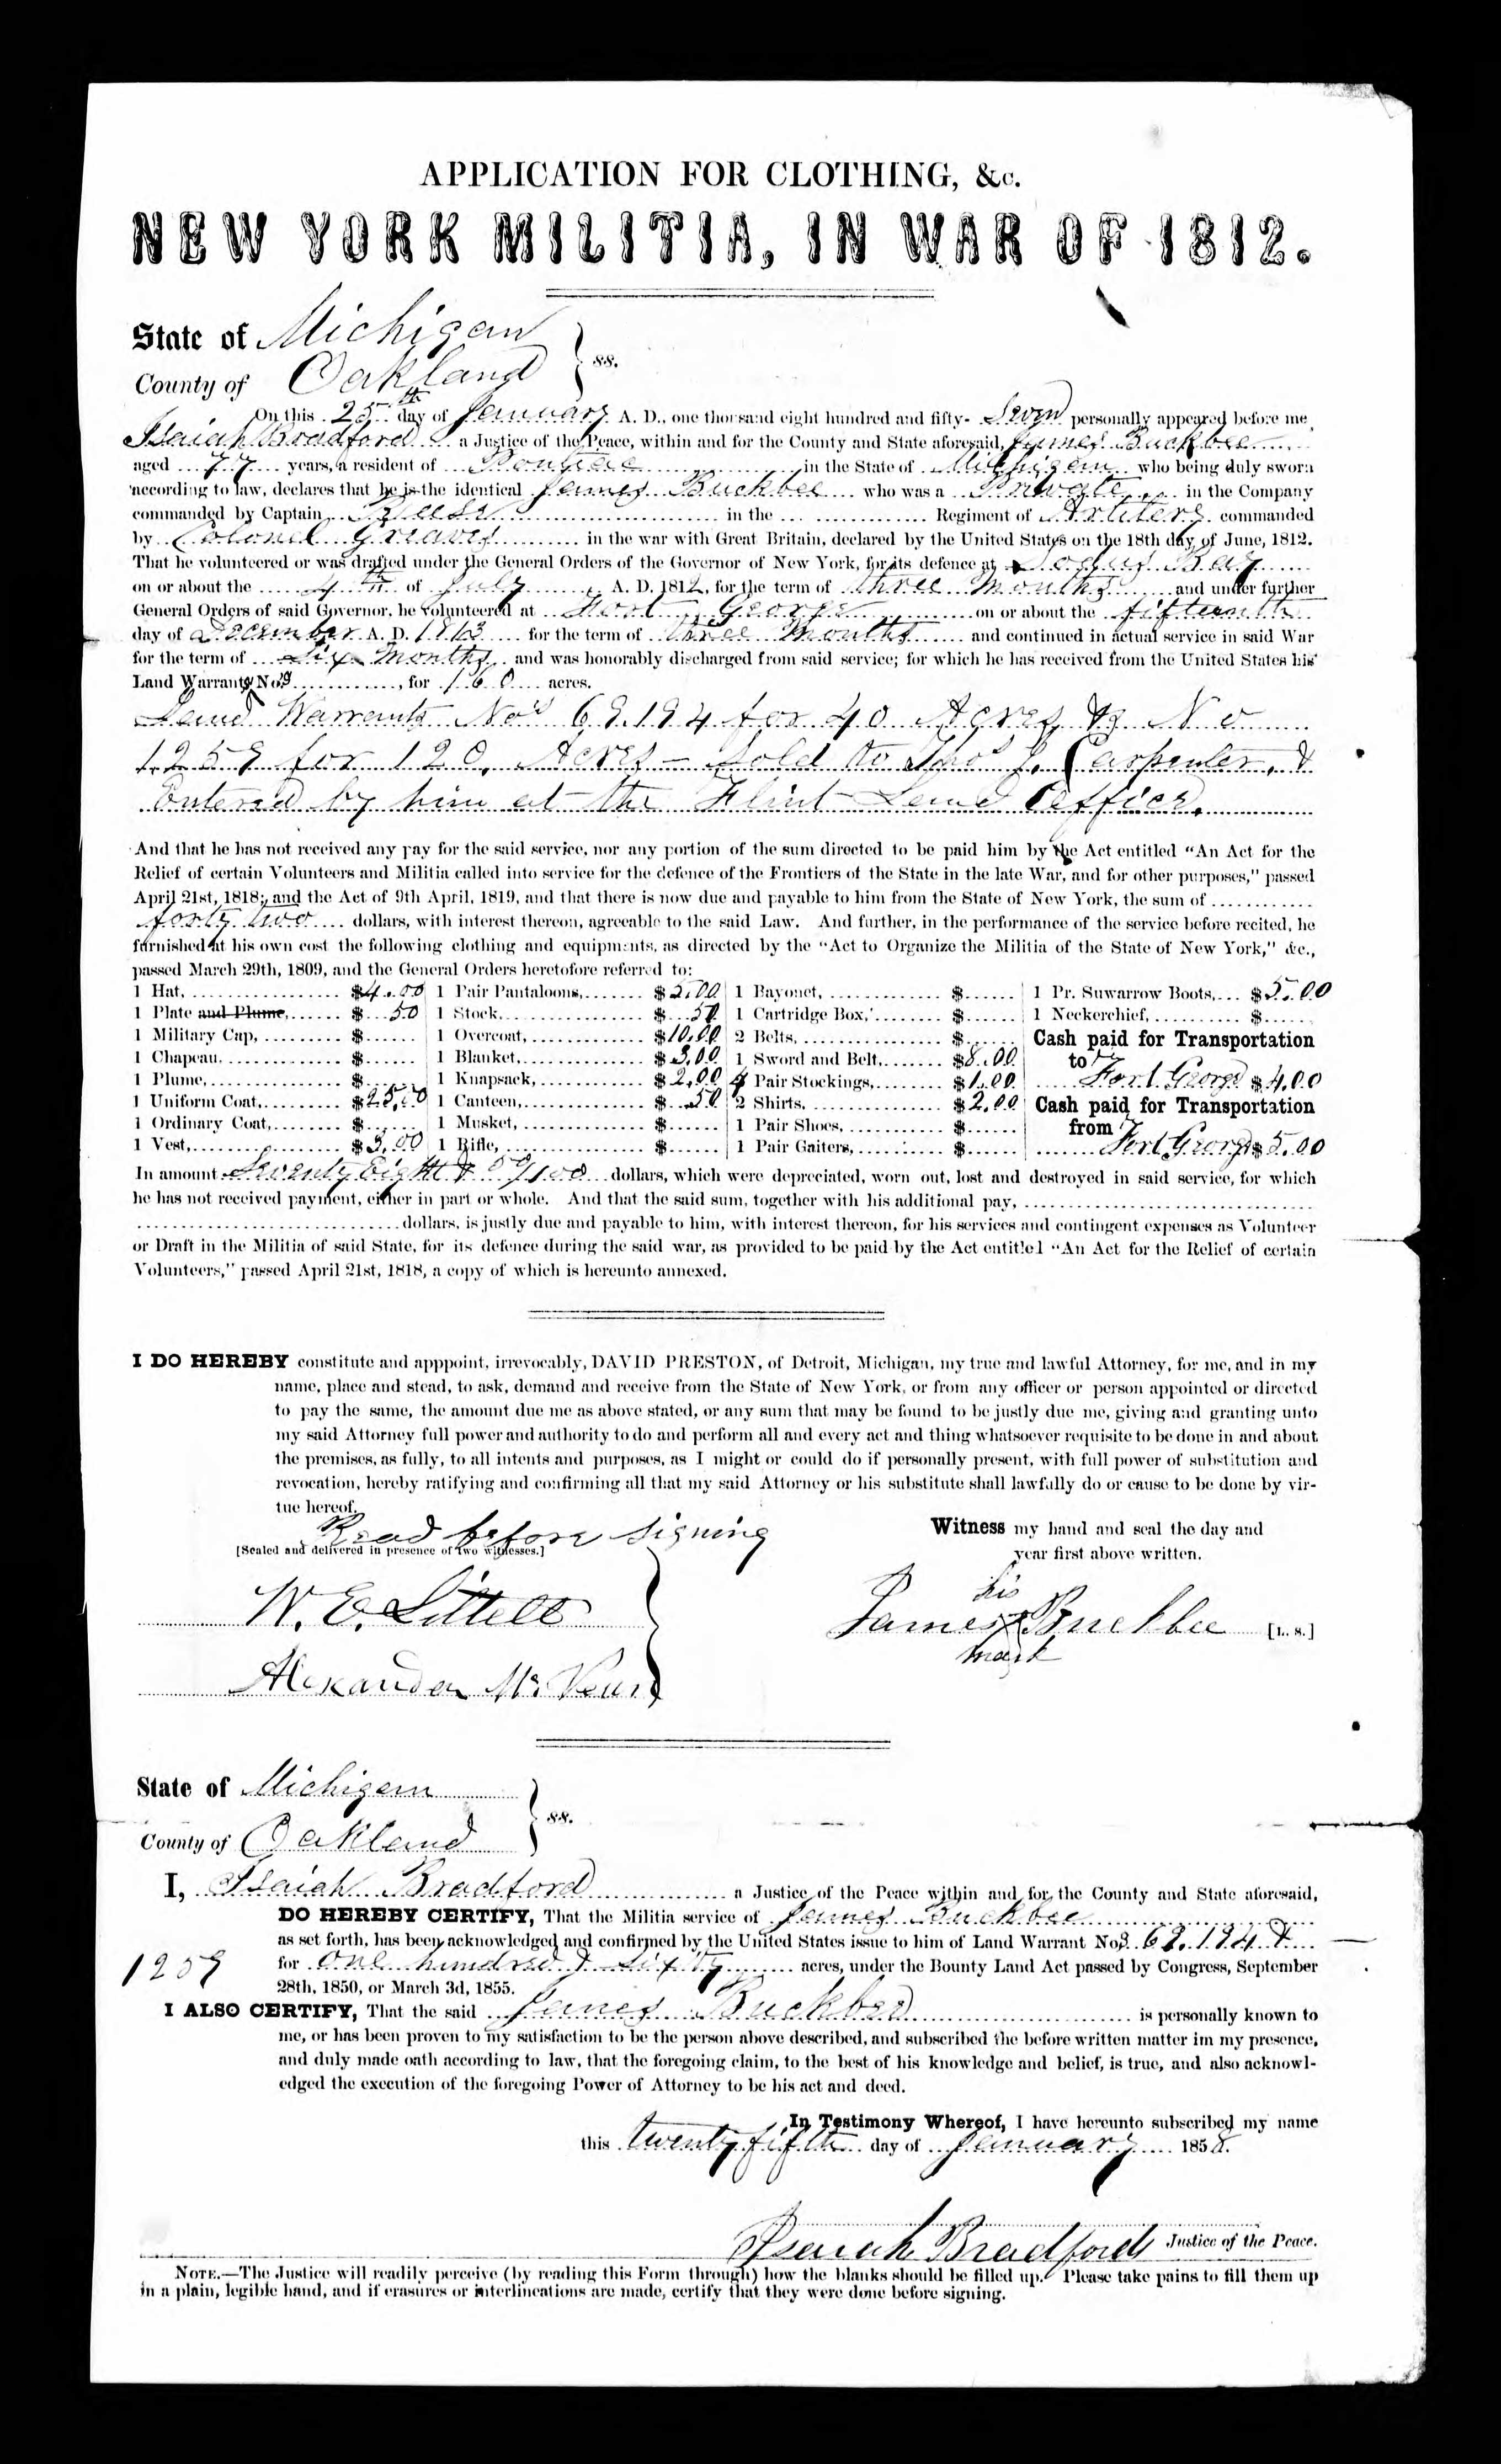 APPLICATION FOR CLOTHING, &c.
NEW YORK MILITIA, IN WAR OF 1812.
State of Michigan
County of Oakland } ss.
On this 25th day of January A. D., one thousand eight hundred and fifty- Seven personally appeared before me,
Isaiah Bradford a Justice of the Peace, within and for the County and State aforesaid, James Buckbee
aged 77 years, a resident of Pontiac in the State of Michigan who being duly sworn
according to law, declares that he is the identical James Buckbee who was a Private in the Company
commanded by Captain Reese in the Regiment of Artilery commanded
by Colonel Greaves in the war with Great Britain, declared by the United States on the 18th day of June, 1812.
That he volunteered or was drafted under the General Orders of the Governor of New York, for its defence at Sodus Bay
on or about the 4th of July A. D. 1812, for the term of three Months and under further
General Orders of said Governor, he volunteered at Fort George on or about the fifteenth
day of December A. D. 1813 for the term of three Months and continued in actual service in said War
for the term of Six Months and was honorably discharged from said service; for which he has received from the United States his
Land Warrants Nos , for 160 acres.
Land Warrants Nos 69.194 for 40 Acres & No
1259 for 120, Acres - Sold to Thos J. Carpenter, &
Entered by him at the Flint Land Office,
And that he has not received any pay for the said service, nor any portion of the sum directed to be paid him by the Act entitled "An Act for the
Relief of certain Volunteers and Militia called into service for the defence of the Frontiers of the State in the late War, and for other purposes," passed
April 21st, 1818; and the Act of 9th April, 1819, and that there is now due and payable to him from the State of New York, the sum of
forty two dollars, with interest thereon, agreeable to the said Law. And further, in the performance of the service before recited, he
furnished at his own cost the following clothing and equipments, as directed by the "Act to Organize the Militia of the State of New York," &c.,
passed March 29th, 1809, and the General Orders heretofore referred to:
1 Hat, $4.00 1 Pair Pantaloons, $5.00 1 Bayonet, $ 1 Pr. Suwarrow Boots, $5.00
1 Plate and Plume, $ 50 1 Stock, $ 50 1 Cartridge Box, $ 1 Neckerchief, $
1 Military Cap, $ 1 Overcoat, $10.00 2 Belts, $ Cash paid for Transportation
1 Chapeau, $ 1 Blanket, $3.00 1 Sword and Belt, $8.00 to
1 Plume, $ 1 Knapsack, $2.00 4 Pair Stockings, $1.00 Fort George $4.00
1 Uniform Coat, $25.00 1 Canteen, $ .50 2 Shirts, $2.00 Cash paid for Transportation
1 Ordinary Coat, $ 1 Musket, $ 1 Pair Shoes, $ from
1 Vest, $3.00 1 Rifle, $ 1 Pair Gaiters, $ Fort George $5.00
In amount Seventy Eight & 50/100 dollars, which were depreciated, worn out, lost and destroyed in said service, for which
he has not received payment, either in part or whole. And that the said sum, together with his additional pay,
dollars, is justly due and payable to him, with interest thereon, for his services and contingent expenses as Volunteer
or Draft in the Militia of said State, for its defence during the said war, as provided to be paid by the Act entitled "An Act for the Relief of certain
Volunteers," passed April 21st, 1818, a copy of which is hereunto annexed.
I DO HEREBY constitute and apppoint, irrevocably, DAVID PRESTON, of Detroit, Michigan, my true and lawful Attorney, for me, and in my
name, place and stead, to ask, demand and receive from the State of New York, or from any officer or person appointed or directed
to pay the same, the amount due me as above stated, or any sum that may be found to be justly due me, giving and granting unto
my said Attorney full power and authority to do and perform all and every act and thing whatsoever requisite to be done in and about
the premises, as fully, to all intents and purposes, as I might or could do if personally present, with full power of substitution and
revocation, hereby ratifying and confirming all that my said Attorney or his substitute shall lawfully do or cause to be done by vir-
tue hereof.
Read before signing
[Sealed and delivered in presence of two witnesses.]
Witness my hand and seal the day and
year first above written.
W. E. Littell
James his X mark Buckbee [L. S.]
Alexander
State of Michigan
County of Oakland } ss.
I, Isaiah Bradford a Justice of the Peace within and for the County and State aforesaid,
DO HEREBY CERTIFY, That the Militia service of James Buckbee
as set forth, has been acknowledged and confirmed by the United States issue to him of Land Warrant Nos 69.194 &
1259 for One hundred & Sixty acres, under the Bounty Land Act passed by Congress, September
28th, 1850, or March 3d, 1855.
I ALSO CERTIFY, That the said James Buckbee is personally known to
me, or has been proven to my satisfaction to be the person above described, and subscribed the before written matter im my presence,
and duly made oath according to law, that the foregoing claim, to the best of his knowledge and belief, is true, and also acknowl-
edged the execution of the foregoing Power of Attorney to be his act and deed.
In Testimony Whereof, I have hereunto subscribed my name
this twenty fifth day of January 1858.
Isaiah Bradford Justice of the Peace.
NOTE.—The Justice will readily perceive (by reading this Form through) how the blanks should be filled up. Please take pains to fill them up
in a plain, legible hand, and if erasures or interlineations are made, certify that they were done before signing.